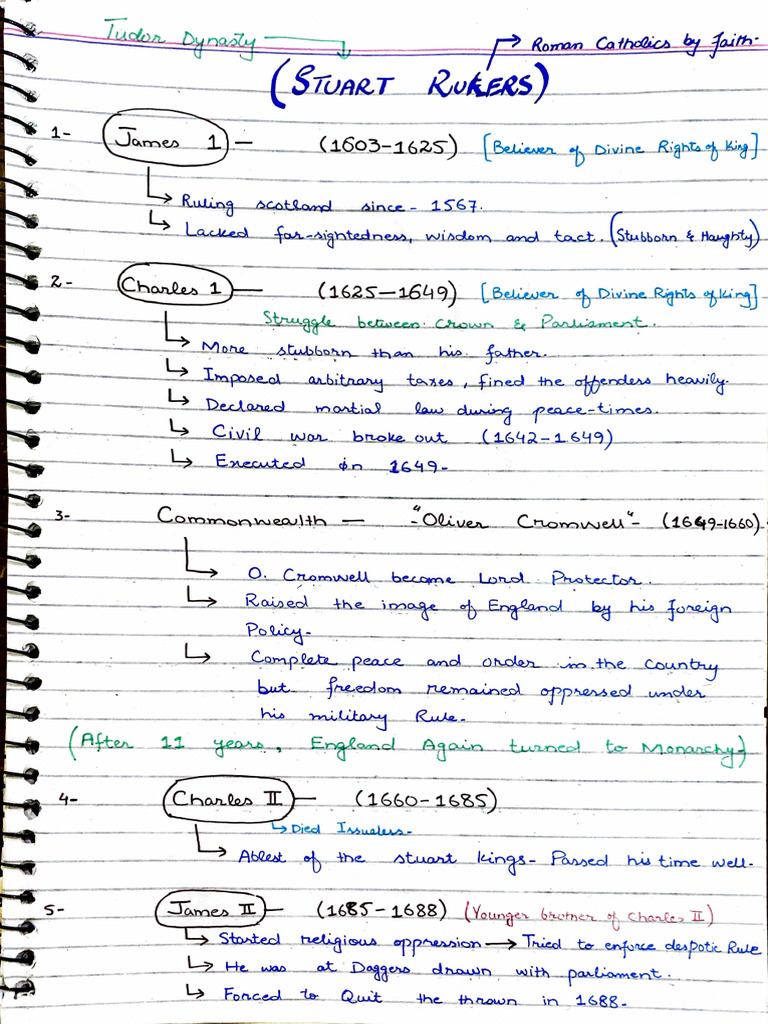 Tudor Dynasty
Roman Catholics by faith.
(STUART RULERS)
1- James 1 — (1603-1625) [Believer of Divine Rights of King]
Ruling scotland since - 1567.
Lacked far-sightedness, wisdom and tact. (Stubborn & Haughty)
2- Charles 1 — (1625-1649) [Believer of Divine Rights of king]
Struggle between crown & Parliament.
More stubborn than his father.
Imposed arbitrary taxes, fined the offenders heavily.
Declared martial law during peace-times.
Civil war broke out (1642-1649)
Executed in 1649-
3- Commonwealth — "Oliver Cromwell" - (1649-1660)
O. Cromwell become Lord Protector.
Raised the image of England by his foreign
Policy-
Complete peace and order in the country
but freedom remained oppressed under
his military Rule-
(After 11 years, England Again turned to Monarchy-)
4- Charles II — (1660-1685)
Died Issueless-
Ablest of the stuart kings- Passed his time well-
5- James II — (1685-1688) (Younger brother of Charles II)
Started religious oppression → Tried to enforce despotic Rule
He was at Daggers drawn with parliament.
Forced to Quit the thrown in 1688-